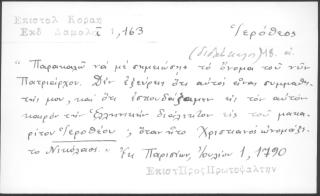 Επιστολ Κοραη
Εκδ Δαμαλᾶ 1,163
Ἱερόθεος
(διδάσκαλος) 18. αἰ.
"Παρακαλῶ νὰ μὲ σημειώσῃς τὸ ὄνομα τοῦ νῦν
Πατριάρχου. Δὲν ἐξεύρεις ὅτι αὐτοὶ εἶναι συμμαθη-
τής μου, καὶ ὅτι ἐσπουδάζαμεν εἰς τὸν αὐτὸν
καιρὸν τὴν Ἑλληνικὴν διάλεκτον εἰς τοῦ μακα-
ρίτου Ἱεροθέου, ὅταν ὡς Χριστιανὸς ὠνομάζε-
το Νικόλαος." Ἐκ Παρισίων, Ἰουλίου 1, 1790
ΕπιστΠροςΠρωτοψαλτην